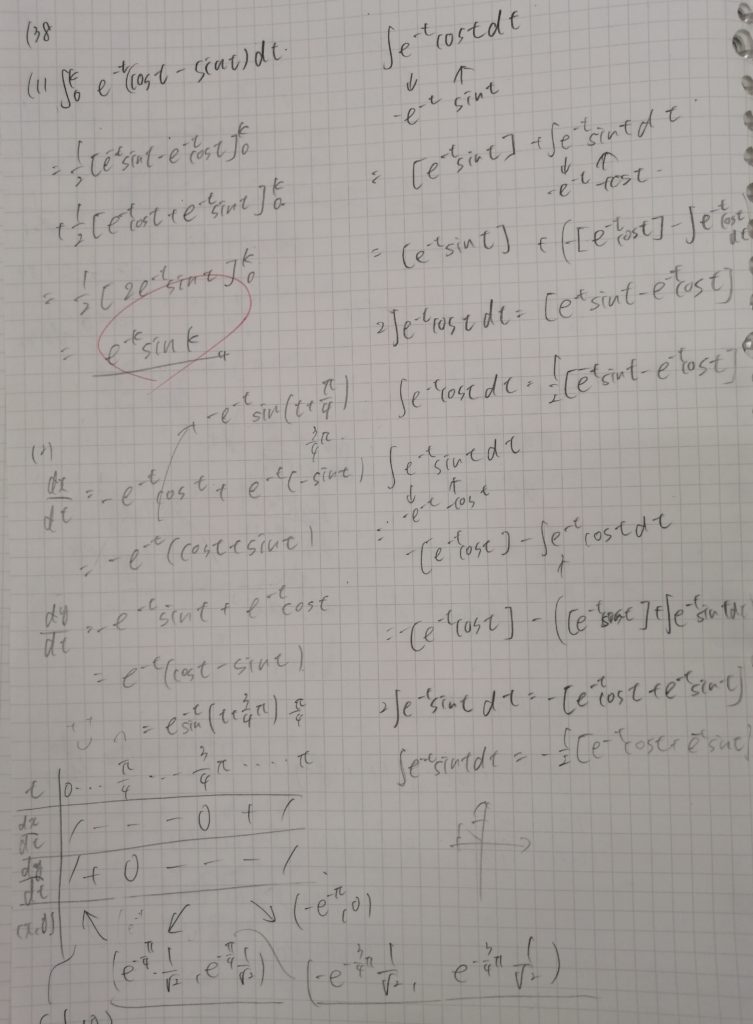 138
(1) ∫₀ᵏ e⁻ᵗ(cost − sint)dt.
= 1/2 [e⁻ᵗsint − e⁻ᵗcost]₀ᵏ
+ 1/2 [e⁻ᵗcost + e⁻ᵗsint]₀ᵏ
= 1/2 [2e⁻ᵗsint]₀ᵏ
= e⁻ᵏ sin k
−e⁻ᵗ sin(t + π/4)
3/4 π
(2)
dx/dt = −e⁻ᵗcost + e⁻ᵗ(−sint)
= −e⁻ᵗ(cost + sint)
dy/dt = −e⁻ᵗsint + e⁻ᵗcost
= e⁻ᵗ(cost − sint)
= e⁻ᵗsin(t + 3/4 π) π/4
t 0 ... π/4 ... 3/4 π .... π
dx/dt / − − − 0 + /
dy/dt / + 0 − − − /
(x,y) ↖ ↙ ↘ (−e^−π, 0)
(e^−π/4 · 1/√2, e^−π/4 1/√2) (−e^−3/4π 1/√2, e^−3/4π 1/√2)
∫e⁻ᵗcost dt
↓ ↑
−e⁻ᵗ sint
= [e⁻ᵗsint] + ∫e⁻ᵗsint dt
↓ ↑
−e⁻ᵗ −cost
= [e⁻ᵗsint] + (−[e⁻ᵗcost] − ∫e⁻ᵗcost dt
2∫e⁻ᵗcost dt = [e⁻ᵗsint − e⁻ᵗcost]
∫e⁻ᵗcost dt = 1/2 [e⁻ᵗsint − e⁻ᵗcost]
∫e⁻ᵗsint dt
↓ ↑
−e⁻ᵗ −cost
= −[e⁻ᵗcost] − ∫e⁻ᵗcost dt
= −[e⁻ᵗcost] − ([e⁻ᵗsint] + ∫e⁻ᵗsint dt
2∫e⁻ᵗsint dt = −[e⁻ᵗcost + e⁻ᵗsint]
∫e⁻ᵗsint dt = −1/2 [e⁻ᵗcost + e⁻ᵗsint]